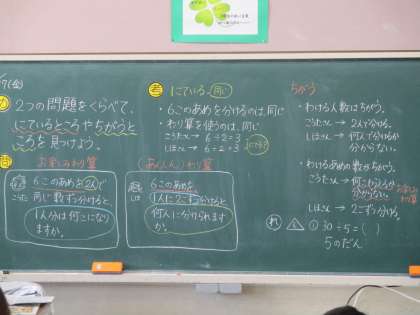 /9(金)
め
2つの問題をくらべて、
にているところやちがうと
ころを見つけよう。
問
お楽しみわり算
6このあめを2人で
同じ数ずつ分けると
1人分は何こになり
ますか。
こうた
わり算
6このあめを、
1人に2こずつ分けると
何人に分けられます
か。
しほ
考
にている 同じ
・6こあめを分けるのは、同じ
・わり算を使うのは、同じ
こうたさん→ 6÷2=3
しほさん→ 6÷2=3
ちがう
・わける人数はちがう。
こうたさん → 2人で分ける。
しほさん → 何人で分けるか
分からない。
・わけるあめの数がちがう。
こうたさん → 何こかふえるか
分からない。
しほさん → 2こずつ分ける。
れ
① 30÷5=( )
5のだん